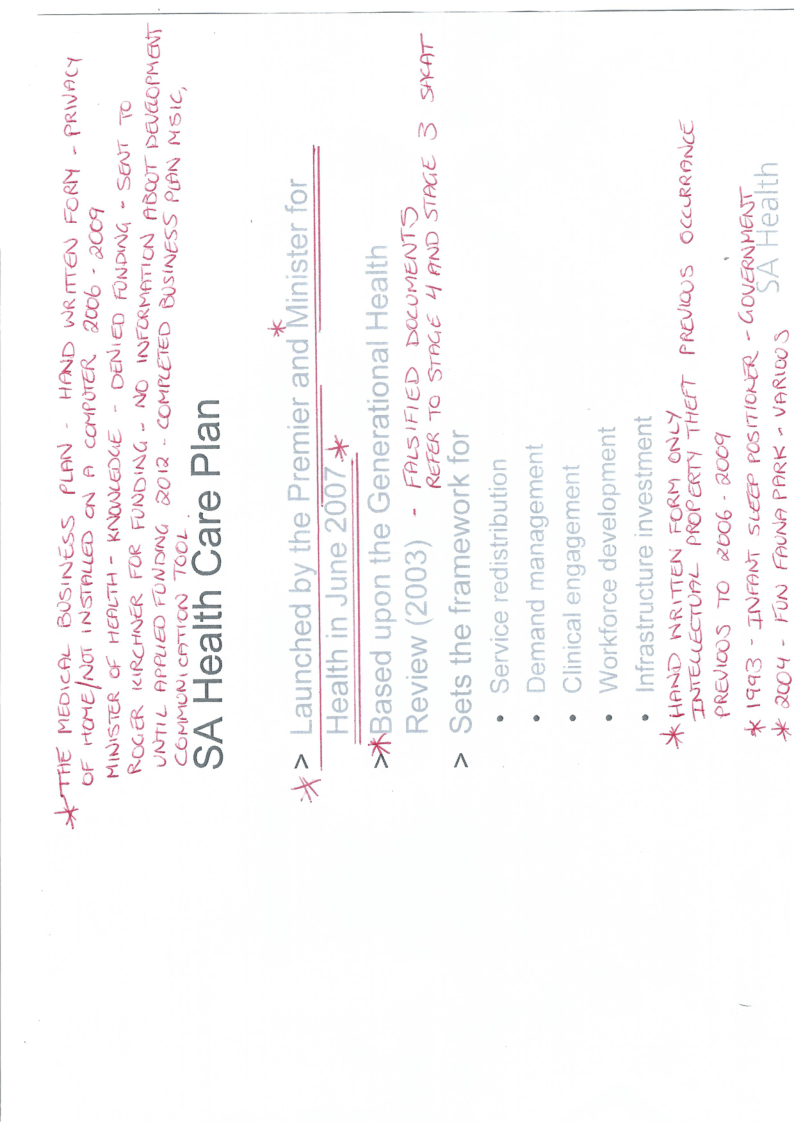 * THE MEDICAL BUSINESS PLAN - HAND WRITTEN FORM - PRIVACY
OF HOME/NOT INSTALLED ON A COMPUTER 2006 - 2009
MINISTER OF HEALTH - KNOWLEDGE - DENIED FUNDING - SENT TO
ROGER KIRCHNER FOR FUNDING - NO INFORMATION ABOUT DEVELOPMENT
UNTIL APPLIED FUNDING 2012 - COMPLETED BUSINESS PLAN MSIC,
COMMUNICATION TOOL.
SA Health Care Plan
* > Launched by the Premier and Minister for *
Health in June 2007 *
>* Based upon the Generational Health
Review (2003) - FALSIFIED DOCUMENTS
REFER TO STAGE 4 AND STAGE 3 SAKAT
> Sets the framework for
• Service redistribution
• Demand management
• Clinical engagement
• Workforce development
• Infrastructure investment
* HAND WRITTEN FORM ONLY
INTELLECTUAL PROPERTY THEFT PREVIOUS OCCURRANCE
PREVIOUS TO 2006 - 2009
* 1993 - INFANT SLEEP POSITIONER - GOVERNMENT
* 2004 - FUN FAUNA PARK - VARIOUS
SA Health